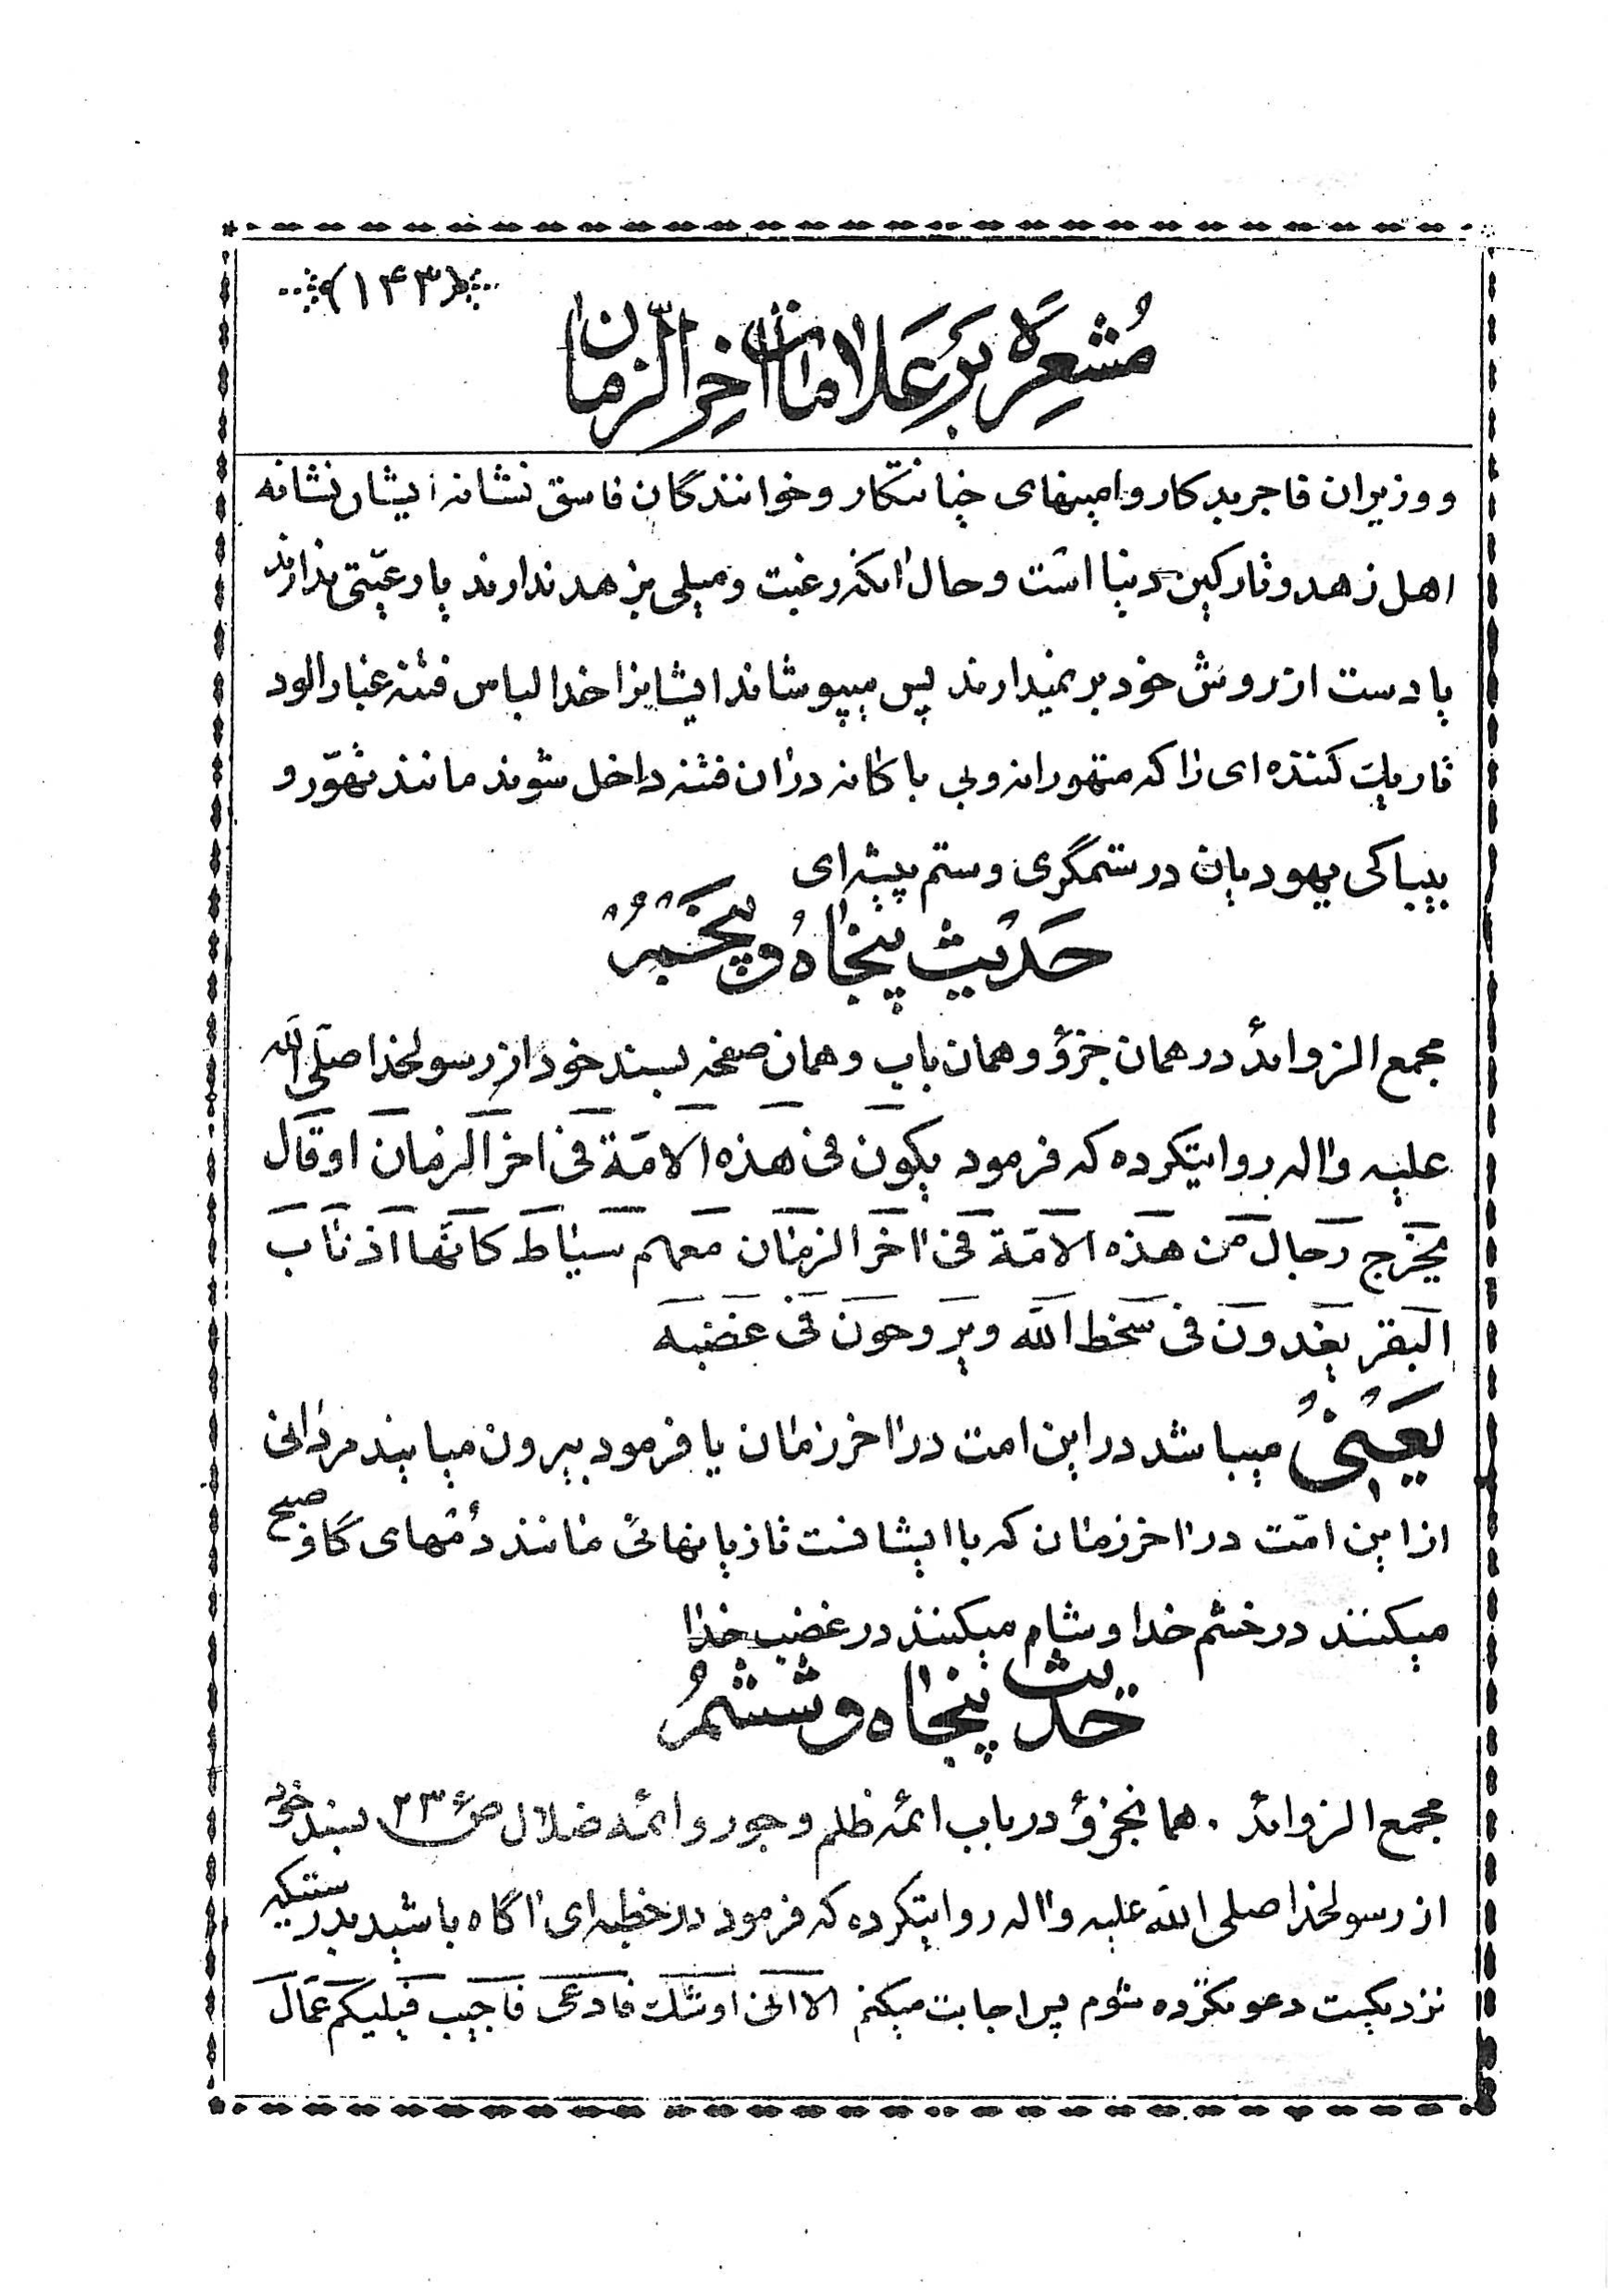 (۱۴۳)
مُشعِرَه بَر عَلاماتِ آخِرُ الزَّمان
و وزیران فاجر بدکار و امینهای خیانتکار و خوانندگان فاسق نشانه ایشان نشانه
اهل زهد و تارکین دنیا است و حال آنکه رغبت و میلی بزهد ندارند یا رعیّتی ندارند
یا دست از روش خود بر نمیدارند پس میپوشاند ایشانرا خدا لباس فتنه غبارالود
تاریک کننده ای را که متهورانه و بی باکانه در ان فتنه داخل شوند مانند تهوّر و
بیباکی یهودیان در ستمگری و ستم پیشه ای
حَدیث پَنجاهُ و پَنجُم
مجمع الزوائد در همان جزؤ و همان باب و همان صفحه بسند خود از رسولخدا صلّی الله
علیه و اله روایتکرده که فرمود یکون فی هذه الامّة فی اخر الزمان او قال
یخرج رجال من هذه الامّة فی اخر الزمان معهم سیاط کانّها اذناب
البقر یغدون فی سخط الله و یروحون فی غضبه
یَعنی میباشد در این امت در اخر زمان یا فرمود بیرون میایند مردانی
از این امّت در اخر زمان که با ایشانست تازیانهائی مانند دُمهای گاو صبح
میکنند در خشم خدا و شام میکنند در غضب خدا
حَدیث پَنجاه و شِشُم
مجمع الزوائد . همانجزؤ در باب ائمه ظلم و جور و ائمه ضلال ص ۲۳ بسند خود
از رسولخدا صلی الله علیه و اله روایتکرده که فرمود در خطبه ای اگاه باشید بدرستیکه
نزدیکست دعوتکرده شوم پس اجابت میکنم الا انی اوشک فادعی فاجیب فیلیکم عمّال